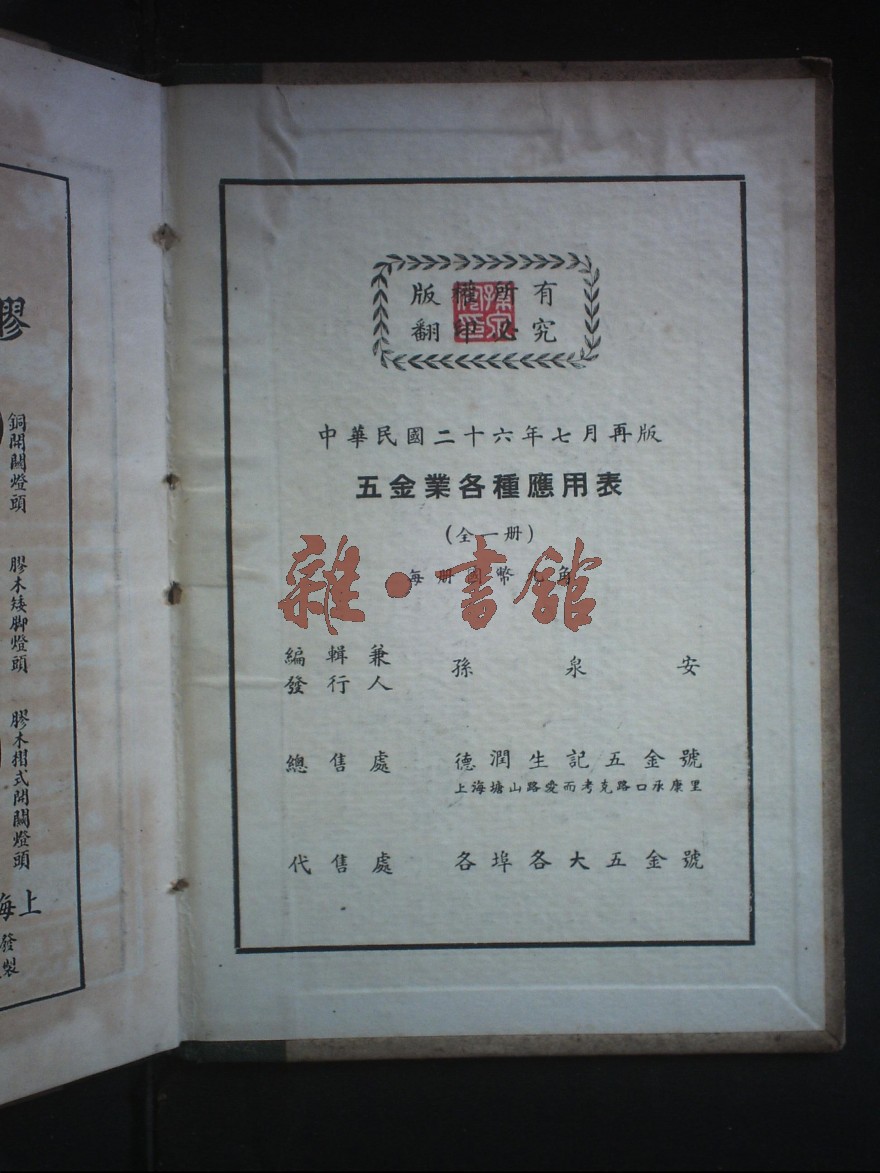 版權所有
翻印必究
中華民國二十六年七月再版
五金業各種應用表
(全一册)
每册國幣九角
雜·書館
編輯兼
發行人
孫泉安
總售處
德潤生記五金號
上海塘山路愛而考克路口承康里
代售處
各埠各大五金號
膠
銅開關燈頭
膠木矮脚燈頭
膠木摺式開關燈頭
上海
發
製